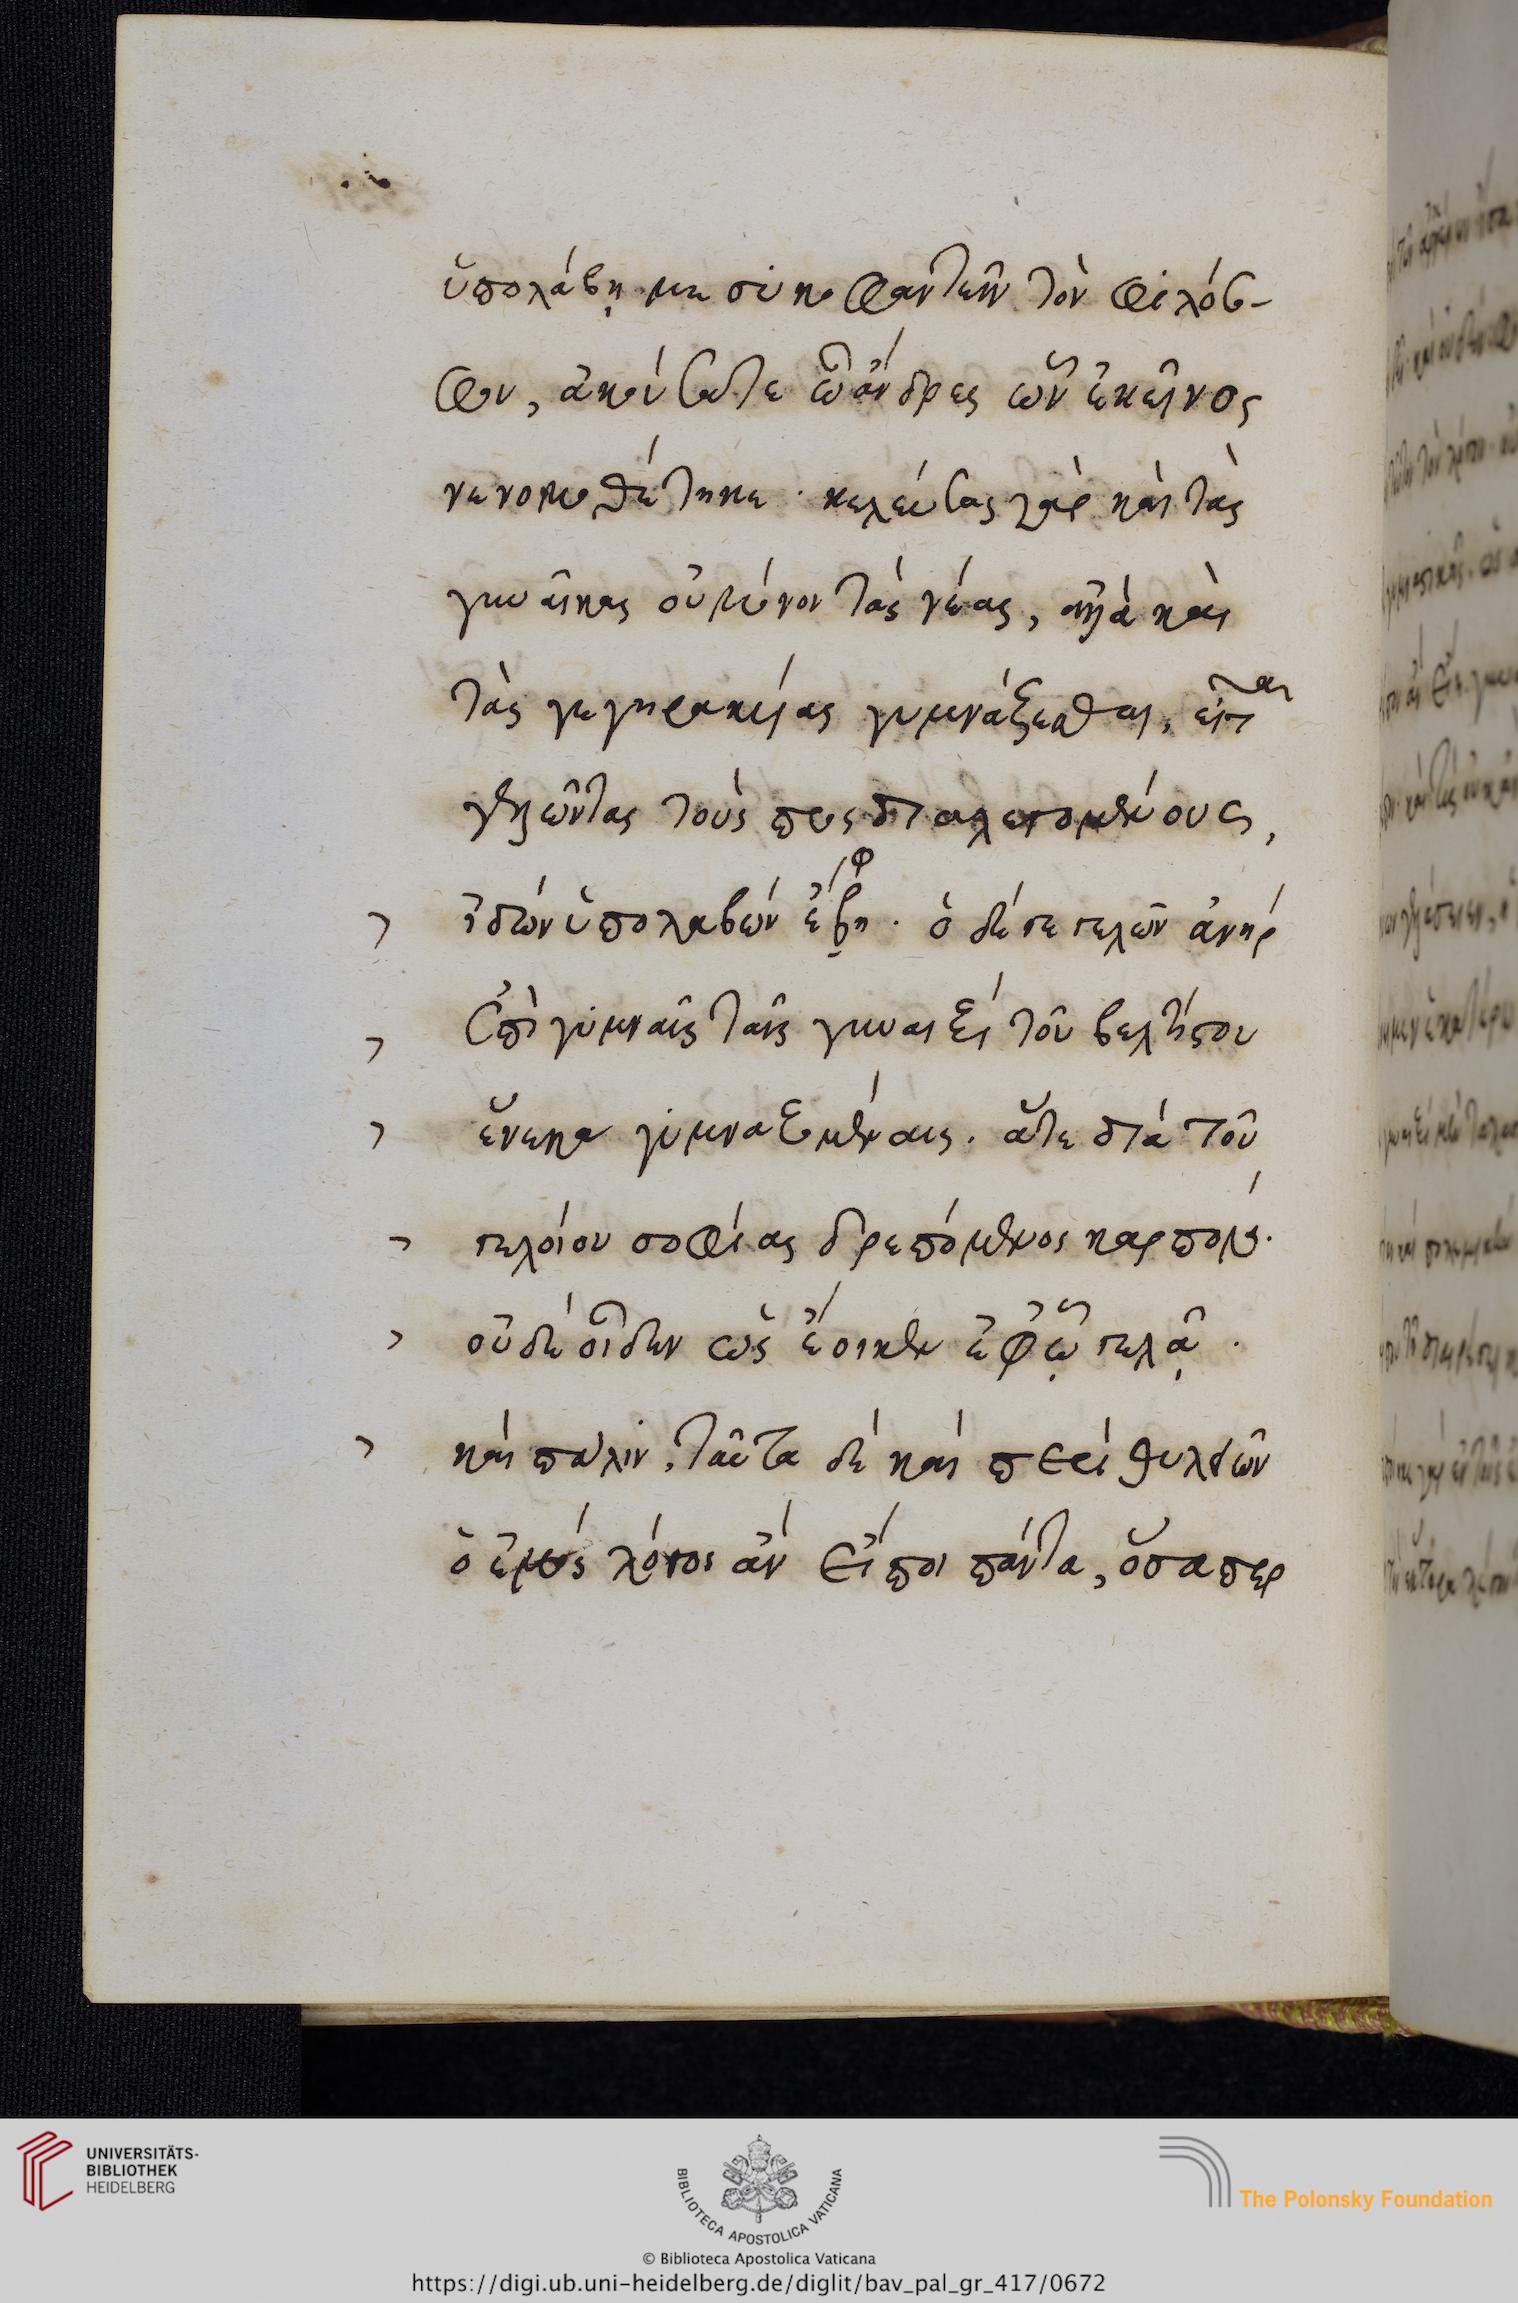 ὑπολάβῃ με συκοφαντεῖν τὸν φιλόσ-
φον, ἀκούσατε ὦ ἄνδρες ὧν ἐκεῖνος
νενομοθέτηκε. κελεύσας γὰρ καὶ τὰς
γυναῖκας οὐ μόνον τὰς νέας, ἀλλὰ καὶ
τὰς γεγηρακυίας γυμνάζεσθαι, εἶτα
γελῶντας τοὺς προσδιαλεγομένους,
ἰδὼν ὑπολαβὼν ἔφη. ὁ δέ γε γελῶν ἀνὴρ
ἐπὶ γυμναῖς ταῖς γυναιξὶ τοῦ βελτίστου
ἕνεκα γυμναζομέναις. ἅτε διὰ τοῦ
γελοίου σοφίας δρεπόμενος καρπούς.
οὐδὲ οἶδεν ὡς ἔοικεν ἐφ' ᾧ γελᾷ.
καὶ πάλιν, ταῦτα δὲ καὶ περὶ θηλειῶν
ὁ ἐμὸς λόγος ἂν εἴποι πάντα, ὅσαπερ
UNIVERSITÄTS-
BIBLIOTHEK
HEIDELBERG
BIBLIOTECA APOSTOLICA VATICANA
The Polonsky Foundation
© Biblioteca Apostolica Vaticana
https://digi.ub.uni-heidelberg.de/diglit/bav_pal_gr_417/0672